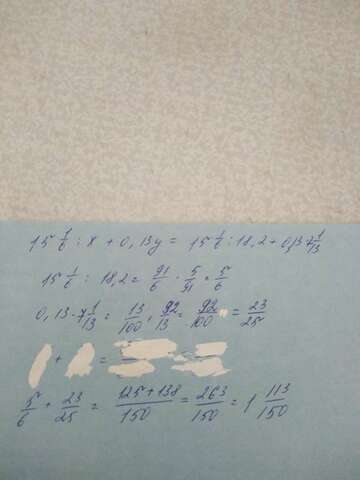 15 1/6 : x + 0,13y = 15 1/6 : 18,2 + 0,13·7 1/13
15 1/6 : 18,2 = 91/6 · 5/91 = 5/6
0,13·7 1/13 = 13/100 · 92/13 = 92/100 = 23/25
+ =
5/6 + 23/25 = 125+138/150 = 263/150 = 1 113/150